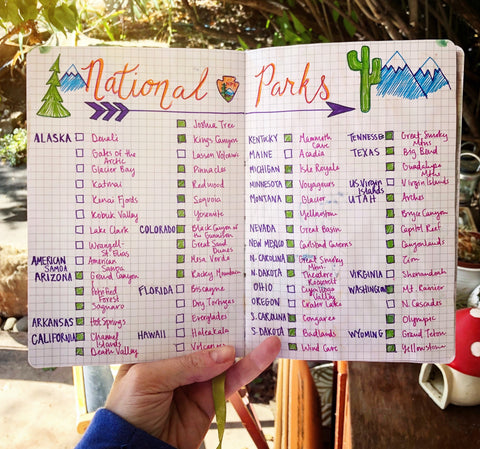 National Parks
ALASKA Denali
Gates of the
Arctic
Glacier Bay
Katmai
Kenai Fjords
Kobuk Valley
Lake Clark
Wrangell-
St. Elias
AMERICAN
SAMOA
American
Samoa
ARIZONA Grand Canyon
Petrified
Forest
Saguaro
ARKANSAS Hot Springs
CALIFORNIA Channel
Islands
Death Valley
Joshua Tree
Kings Canyon
Lassen Volcanic
Pinnacles
Redwood
Sequoia
Yosemite
COLORADO Black Canyon of
the Gunnison
Great Sand
Dunes
Mesa Verde
Rocky Mountain
FLORIDA Biscayne
Dry Tortugas
Everglades
HAWAII Haleakala
Volcanoes
KENTUCKY Mammoth
Cave
MAINE Acadia
MICHIGAN Isle Royale
MINNESOTA Voyageurs
MONTANA Glacier
Yellowstone
NEVADA Great Basin
NEW MEXICO Carlsbad Caverns
N. CAROLINA Great Smoky
Mtns.
N. DAKOTA Theodore
Roosevelt
OHIO Cuyahoga
Valley
OREGON Crater Lake
S. CAROLINA Congaree
S. DAKOTA Badlands
Wind Cave
TENNESSEE Great Smoky
Mtns
TEXAS Big Bend
Guadalupe
Mtns
US Virgin
Islands
Virgin Islands
UTAH Arches
Bryce Canyon
Capitol Reef
Canyonlands
Zion
VIRGINIA Shenandoah
WASHINGTON Mt. Rainier
N. Cascades
Olympic
WYOMING Grand Teton
Yellowstone